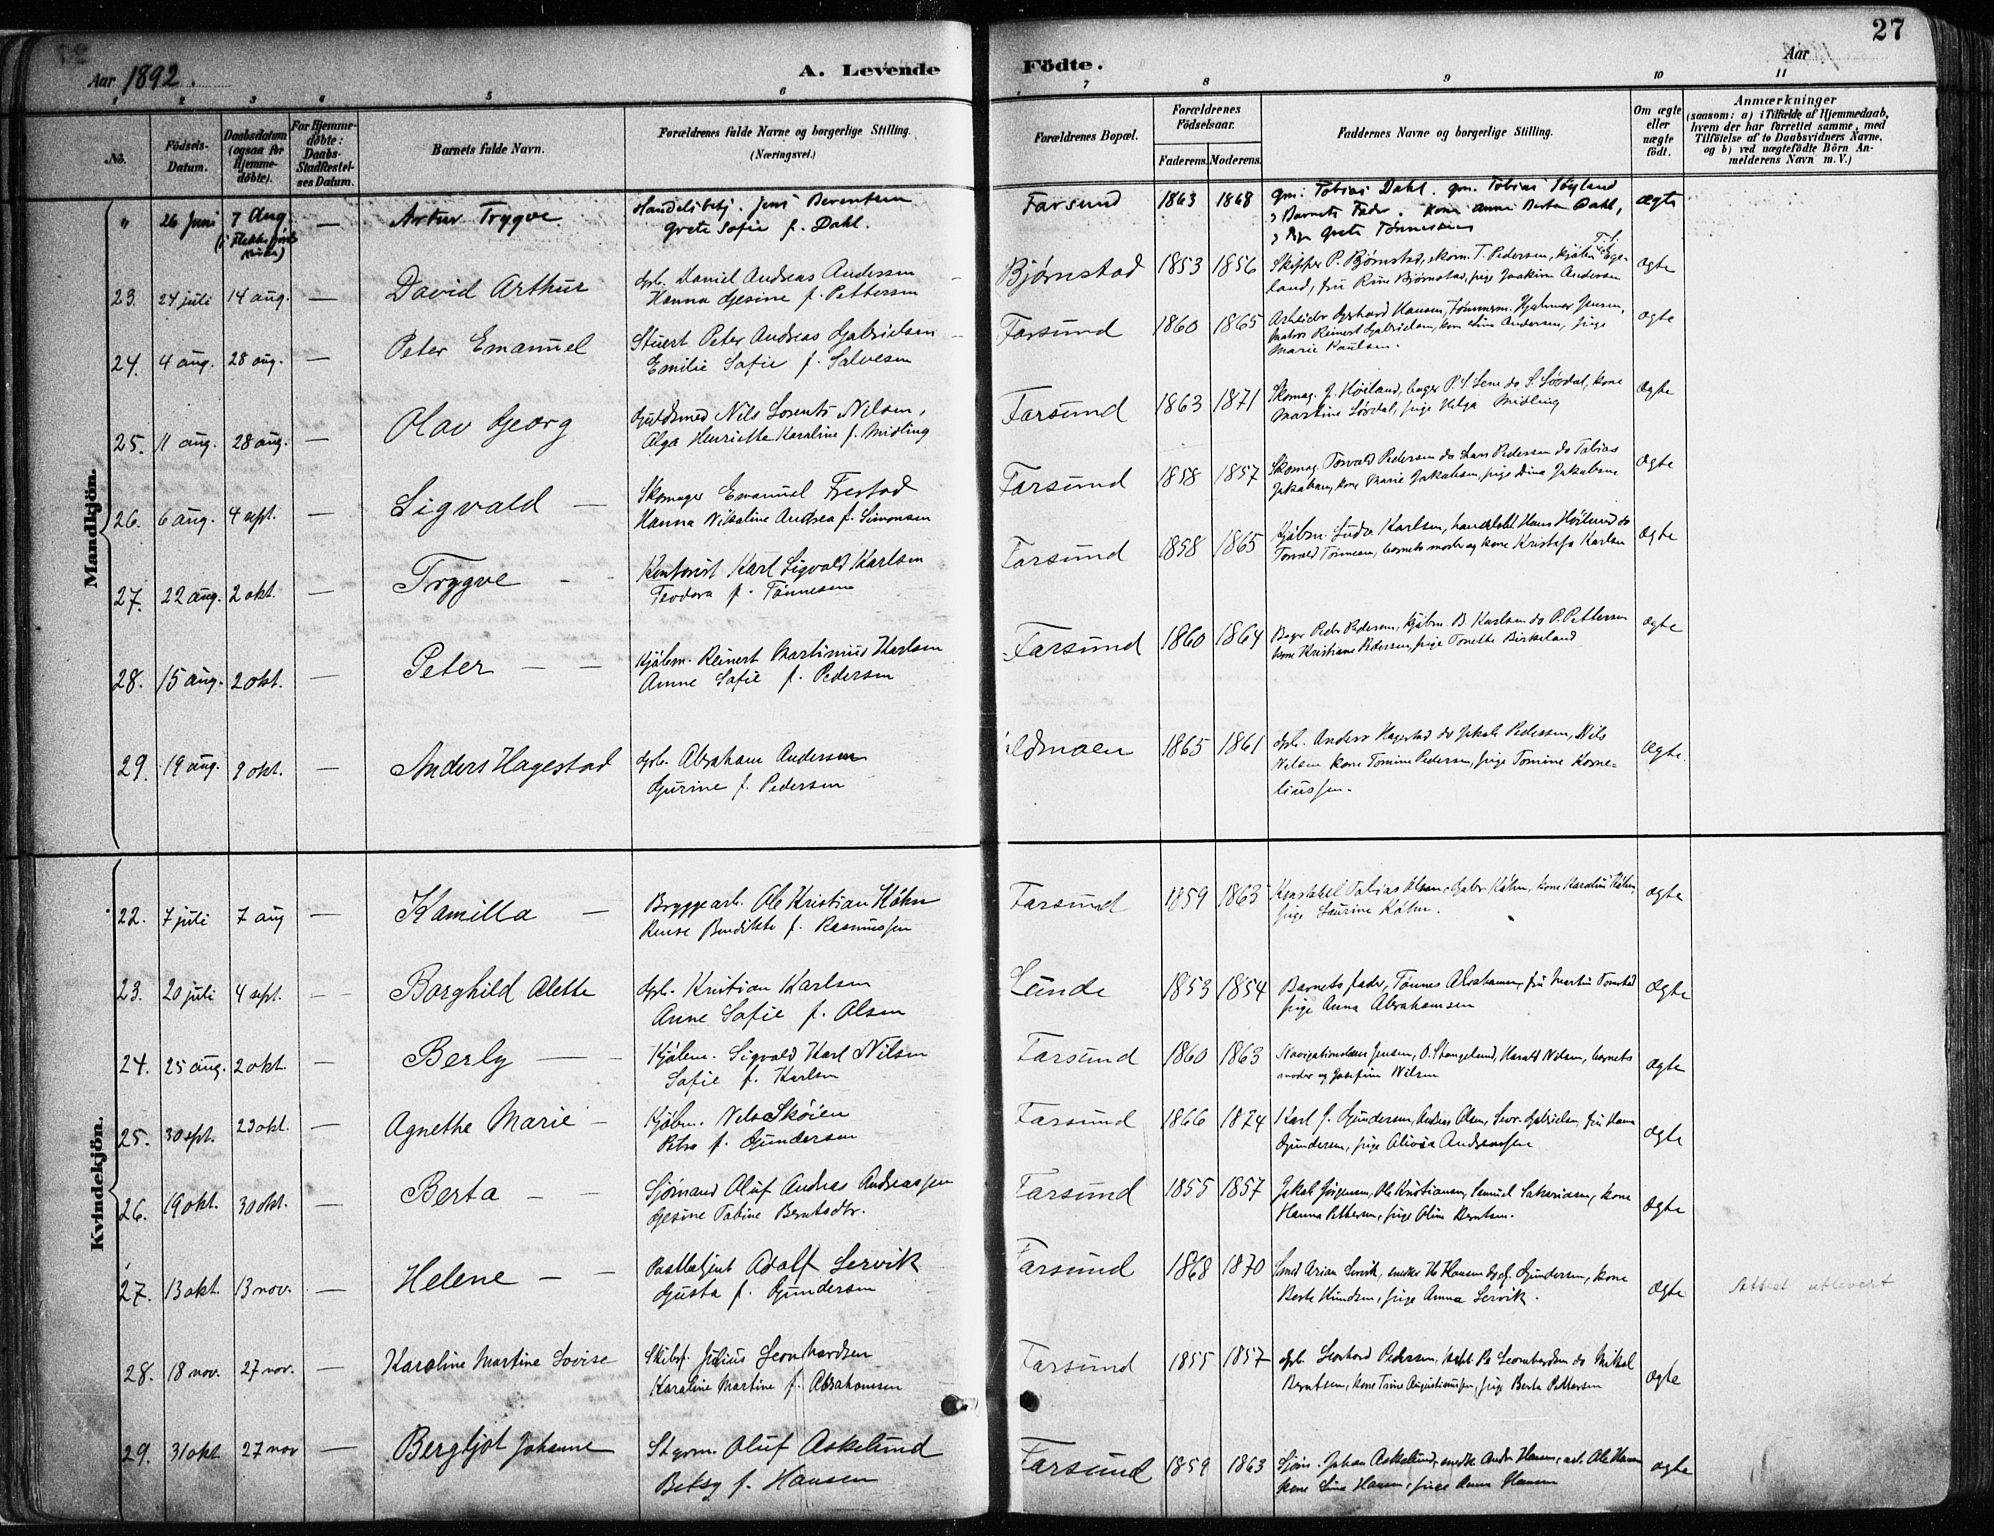 27
Aar 1892.
A. Levende Födte.
Aar
1 2 3 4 5 6 7 8 9 10 11
No.
Födsels-Datum.
Daabsdatum (ogsaa for Hjemme-döbte).
For Hjemme-döbte: Daabs-Stadfæstel-ses Datum.
Barnets fulde Navn.
Forældrenes fulde Navne og borgerlige Stilling. (Næringsvei.)
Forældrenes Bopæl.
Forældrenes Födselsaar.
Faderens. Moderens.
Faddernes Navne og borgerlige Stilling.
Om ægte eller uægte födt.
Anmærkninger (saasom: a) i Tilfælde af Hjemmedaab, hvem der har forrettet samme, med Tilföielse af to Daabsvidners Navne, og b) ved uægtefödte Börn An-melderens Navn m. V.)
Mandkjön.
" 26 Juni 7 Aug — Artur Trygve. Handelsbetj. Jens Berentsen Farsund 1863 1868 gm. Tobias Dahl. gm. Tobias Søyland ægte
Grete Sofie f. Dahl. Barnets Fader. Kone Anne Berta Dahl,
Grete Tønnessen
23. 24 juli 14 aug. — David Arthur gbr. Daniel Andreas Andersen Bjørnstad 1853 1856 Skipper P. Bjørnstad, skom. T. Pedersen, ægte
Hanna Gesine f. Pettersen land, fru Rine Bjørnstad, pige Joakime Andersen
24. 4 aug. 28 aug. — Peter Emanuel Stuert Peter Andreas Gabrielsen Farsund 1860 1865 Arbeider Gerhard Hansen, Tømmerm. Hjalmar Jensen, ægte
Emilie Sofie f. Salvesen Matros Reinert Gabrielsen, kone Andersen, pige
Marie Paulsen.
25. 11 aug. 28 aug. — Olav Georg Guldsmed Nils Lorents Nilsen, Farsund 1863 1871 Skomag. J. Høiland, bager P. S. Lene do S. Lørdal, kone ægte
Olga Henriette Karoline f. Midling Martine Lørdal, pige Helga Midling
26. 6 aug. 4 sept. — Sigvald — Skomager Emanuel Frestad Farsund 1858 1857 Skomag. Torvald Pedersen do Lars Pedersen do Tobias ægte
Hanna Nikoline Andrea f. Simonsen Jakobsen, kone Marie Jakobsen, pige Dina Jakobsen
27. 22 aug. 2 okt. — Trygve — Kontorist Karl Sigvald Karlsen Farsund 1858 1865 Kjøbm. Ludv. Karlsen, handelsb. Hans Høilund do ægte
Teodora f. Tønnesen Torvald Tønnesen, barnets moder og kone Kristofa Karlsen
28. 15 aug. 2 okt. — Peter — — Kjøbm. Reinert Martinius Karlsen Farsund 1860 1864 Bager Peder Pedersen, kjøbm. B Karlsen do P. Pettersen ægte
Anne Sofie f. Pedersen kone Kristiane Pedersen, pige Tonette Birkeland
29. 19 aug. 9 okt. — Anders Hagestad gbr. Abraham Andersen ldmoen 1865 1861 gbr. Anders Hagestad do Jakob Pedersen, Nils ægte.
Gurine f. Pedersen Nilsen kone Tomine Pedersen, pige Tomine Korne-
liussen.
Kvindekjön.
22. 7 juli 7 aug — Kamilla — Bryggearb. Ole Kristian Køhn Farsund 1859 1863 Konstabel Tobias Olsen, Gabr. Køhn, kone Karoline Køhn, ægte
Rense Bendikte f. Rasmussen pige Laurine Køhn.
23. 20 juli 4 sept. — Borghild Alette gbr. Kristian Karlsen Lunde 1853 1854 Barnets fader, Tønnes Abrahamsen, fru Martin Tomstad ægte
Anne Sofie f. Olsen pige Anna Abrahamsen
24. 25 aug. 2 okt. — Berly — — Kjøbm. Sigvald Karl Nilsen Farsund 1860 1863 Navigationslærer Jensen, O. Stangelund, Harald Nilsen, barnets ægte
Sofie f. Karlsen moder og Josefine Nilsen
25. 30 sept. 23 okt. — Agnethe Marie — Kjøbm. Nils Skøien Farsund 1866 1874 Karl J. Gundersen, Andreas Olsen, Gabrielsen, fru Hanna ægte
Petra f. Gundersen Gundersen, pige Olivia Andreassen
26. 19 okt. 30 okt. — Berta — — Sjømand Oluf Andreas Andreassen Farsund 1855 1857 Jakob Jørgensen, Ole Kristiansen, Samuel Sakariasen, kone ægte
Gesine Tabine Berntsdtr. Hanna Pettersen, pige Oline Berntsen.
27. 13 okt. 13 nov. — Helene — — Postbetjent Adolf Lervik Farsund 1868 1870 Smed Arian Lervik, snedker Hansen og G. Gundersen, kone ægte Attest utlevert
Gusta f. Gundersen Berte Knudsen, pige Anna Lervik.
28. 18 nov. 27 nov. — Karoline Martine Lovise Skibsf. Julius Leonhardsen Farsund 1855 1857 gbr. Leonhard Pedersen, Leonhardsen do Mikal ægte
Karoline Martine f. Abrahamsen Berntsen, kone Trine Augustinussen, pige Berta Pettersen
29. 31 okt 27 nov — Bergljot Johanne Styrm. Oluf Askelund Farsund 1859 1863 Sjøm. Johan Askelund, snedk. Andr. Hansen, arb. Ole Hansen ægte
Betsy f. Hansen kone Lina Hansen, pige Anna Hansen